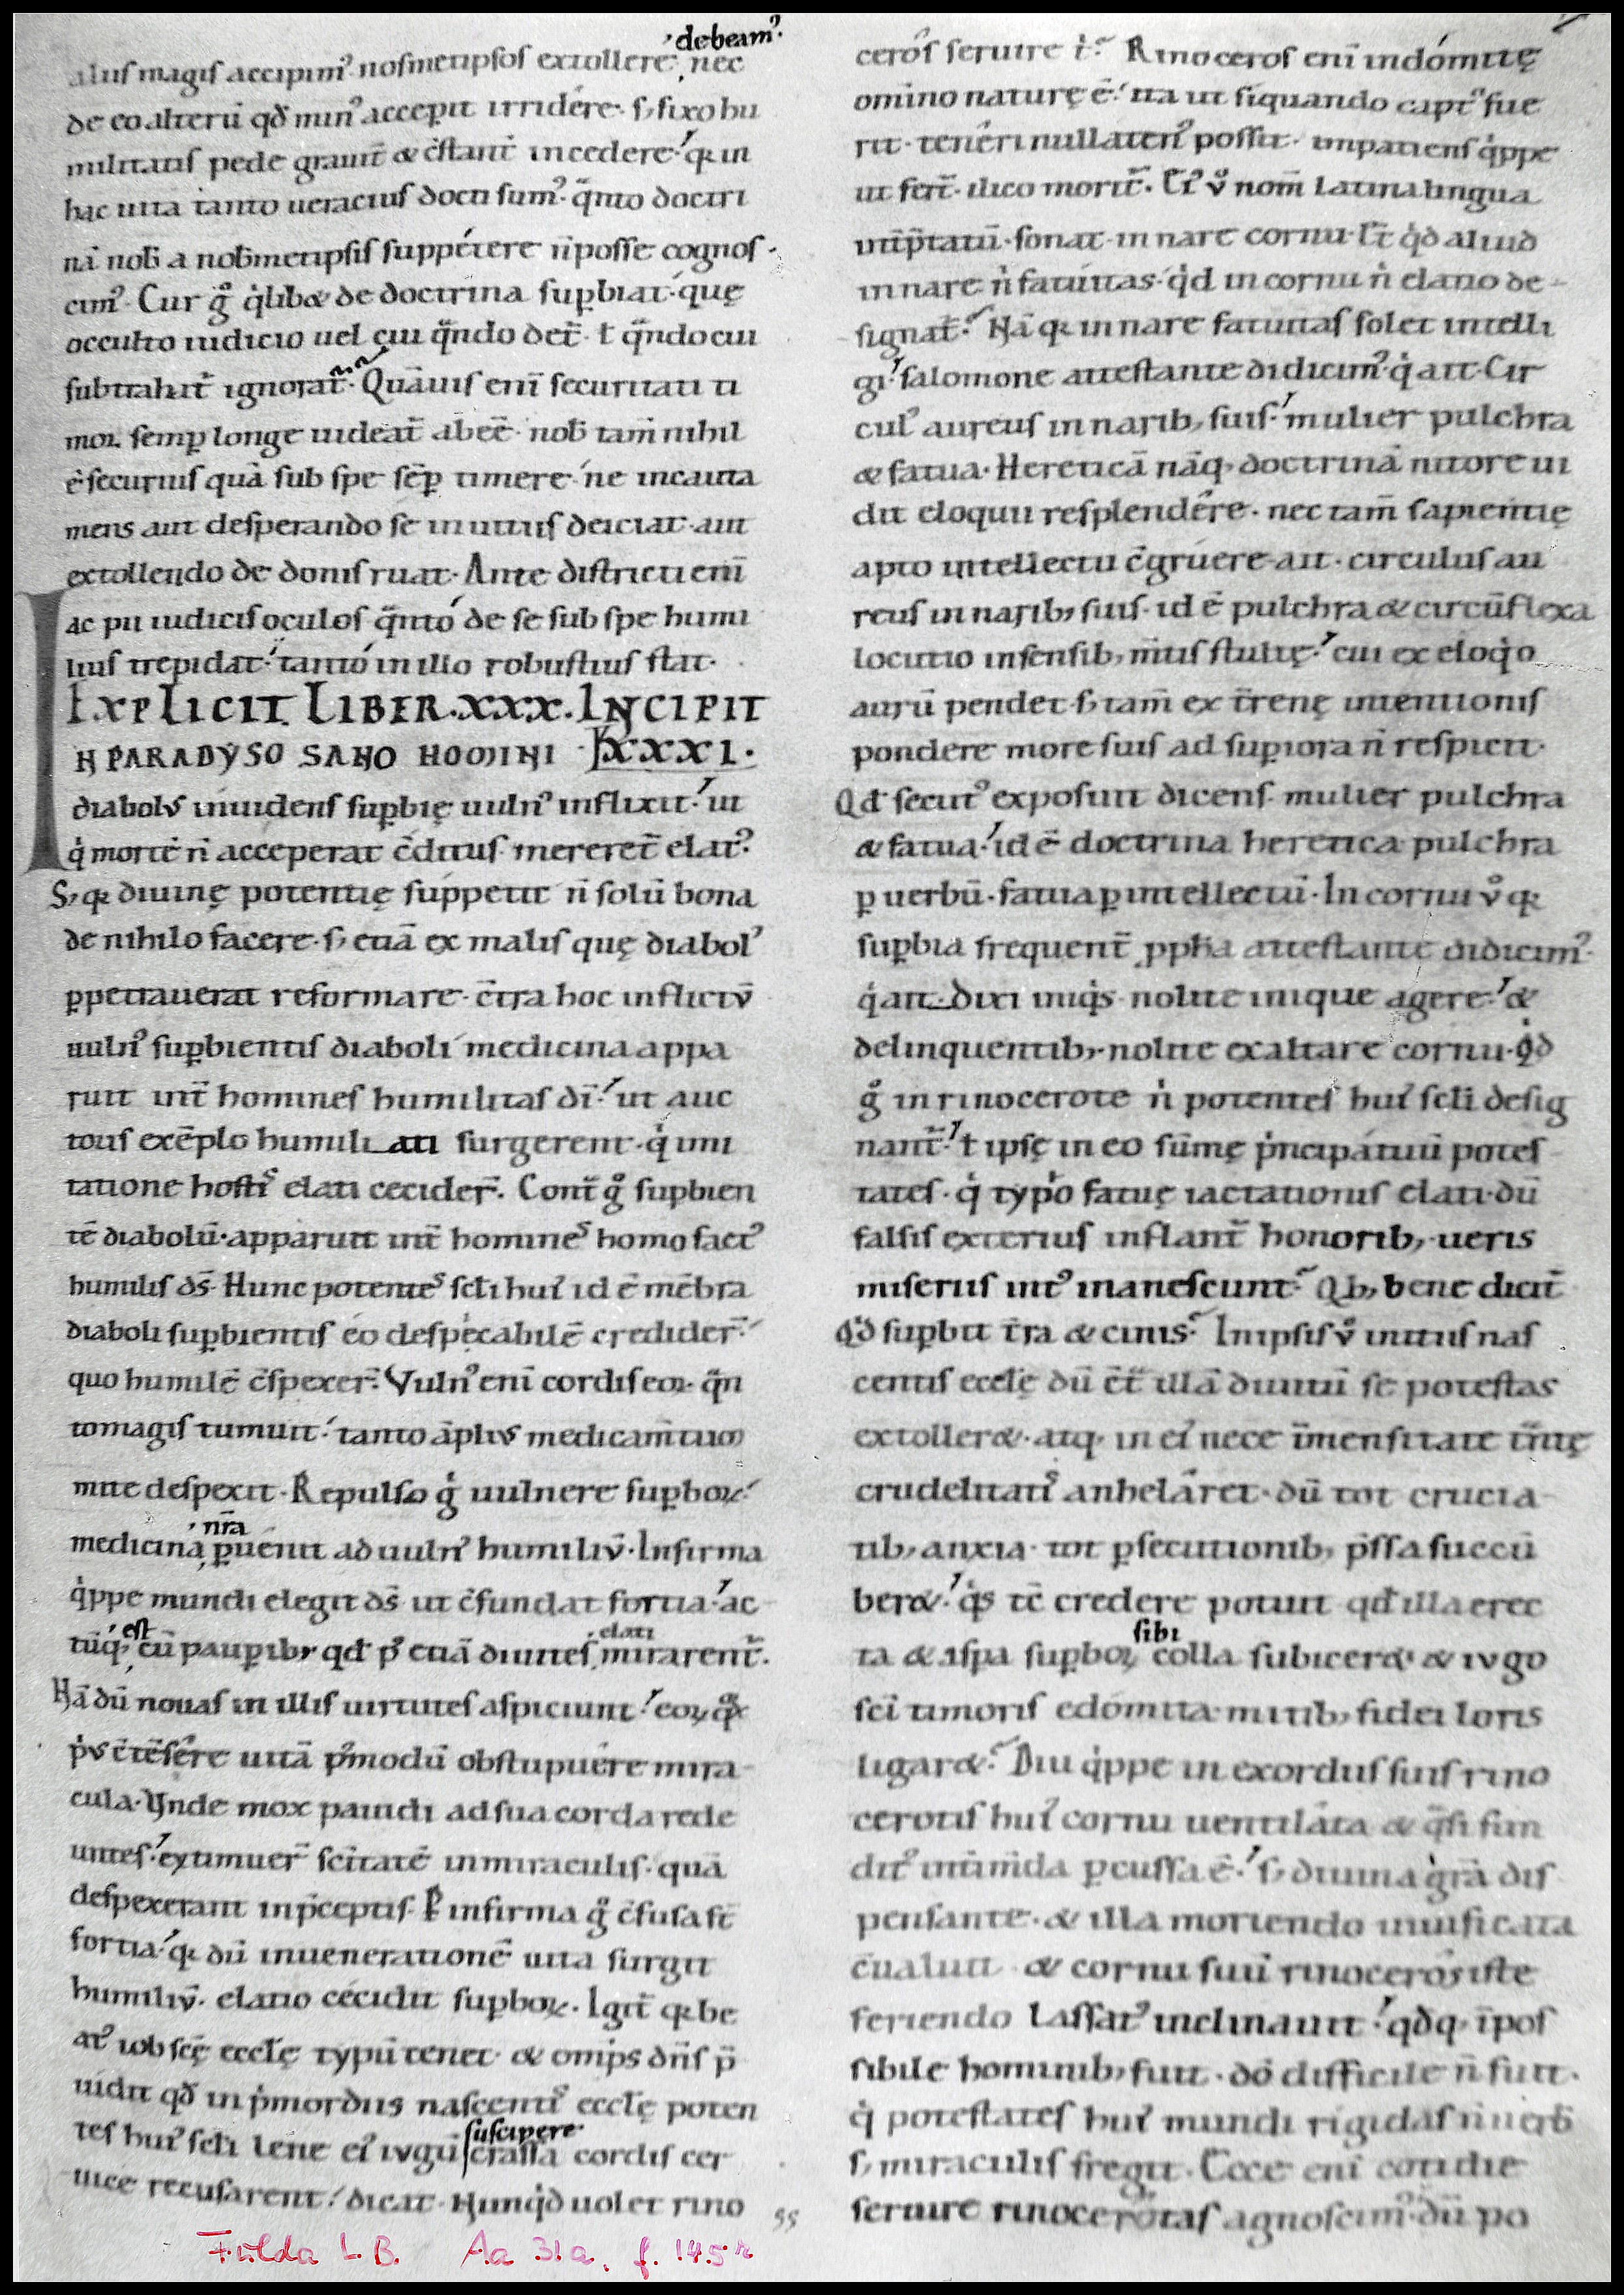 debeam᾽
alius magis accipim᾽ nosmetipsos extollere nec
de eo alterū qd̄ min᾽ accepit irridére· s; fixo hu
militatis pede grauit̄ & c̄stant̄ incedere· q̇a in
hac uita tanto ueracius docti sum᾽· q̄nto doctri
nā nob̄ a nob̄metipsis suppétere n̄ posse cognos-
cim᾽· Cur g̊ q̇lib& de doctrina sup̱biat· quę
occulto iudicio uel cui q̄ndo det̄· ł q̄ndo cui
subtrahit̄ ignorat̄· Quāuis enī securitati ti
moꝝ semp̱ longe uideat̄ abēē· nob̄ tam̄ nihil
ē securius quā sub spe sēp̱ timere· ne incauta
mens aut desperando se in uitiis deiciat· aut
extollendo de donis ruat· Ante districti enī
ac pii iudicis oculos q̄nto de se sub spe humi
lius trepidat· tanto in illo robustius stat·
EXPLICIT LIBER·XXX·INCIPIT
IN PARADYSO SANO HOMINI LXXXI·
diabolus inuidens sup̱bię uuln᾽ inflixit· ut
q̇ mortē n̄ acceperat c̄ditus· mereret̄ elat᾽
S; q̇a diuinę potentię suppetit n̄ solū bona
de nihilo facere· s; etiā ex malis quę diabol᾽
p̱petrauerat reformare· c̄tra hoc inflictū
uuln᾽ sup̱bientis diaboli medicina appa
ruit int̄ homines humilitas dī· ut auc
toris exēplo humiliati surgerent· q̇ imi
tatione hostis elati cecider̄· Cont̄ g̊ sup̱bien
tē diabolū· apparuit int̄ homines homo fact᾽
humilis ds̄· Hunc potentes scl̄i hui᾽ id ē mēbra
diaboli sup̱bientis eo despécabilē credider̄·
quo humilē c̄spexer̄· Vuln᾽ enī cordis eoꝝ· q̄n
to magis tumuit· tanto āplius medicam̄tū
mite despexit· Repulso g̊ uulnere sup̱boꝝ·
nr̄a
medicina p̱uenit ad uuln᾽ humiliū· Infirma
q̇ppe mundi elegit ds̄ ut c̄fundat fortia· ac
est elati
tūq; cū paup̱ib; qd̄ p᾽ etiā diuites mirarent̄·
Nā dū nouas in illis uirtutes aspiciunt· eoꝝ
cula· Vnde mox pauidi ad sua corda rede
untes· extimuer̄ sc̄itatē in miraculis· quā
despexerant in p̄ceptis· P̱ infirma g̊ c̄fusa st̄
fortia· q̇a dū in uenerationē uita surgit
humiliū· elatio cécidit sup̱boꝝ· Igit̄ q̇a be
at᾽ iob scę eccl̄ę typū tenet· & omīps dn̄s p̄
uidit qd̄ in p̓mordiis nascentis eccl̄ę poten
suscipere
tes hui᾽ scl̄i lene ei᾽ iugū crassa cordis cer
uice recusarent· dicat· Nunq̇d uolet rino
ceros seruire t᾽· Rinoceros enī indómitę
omino naturę ē· ita ut siquando capt᾽ fue
rit· tenéri nullaten᾽ possit· impatiens q̇ppe
ut fert̄· ilico morit̄· Ei᾽ ů nom̄ latina lingua
int̄p̄tatū· sonat· in nare cornu· Et q̇d aliud
in nare n̄ fatúitas· q̇d in cornu n̄ elatio de-
signat̄· Nā q̇a in nare fatuitas solet intelli
gi· salomone attestante didicim᾽· q̇ ait· Cir
cul᾽ aureus in narib; suis· mulier pulchra
& fatua· Hereticā nāq; doctrinā nitore ui
dit eloquii resplendére· nec tam̄ sapientię
apto intellectu c̄grúere· ait· circulus au
reus in narib; suis· id ē pulchra & circūflexa
locutio in sensib; m̄tis stultę· cui ex eloq̇o
aurū pendet· s; tam̄ ex t̄renę intentionis
pondere more suis ad sup̱iora n̄ respicit·
Qd̄ secut᾽ exposuit dicens· mulier pulchra
& fatua· id ē doctrina heretica pulchra
p̱ uerbū· fatua p̱ intellectū· In cornu ů q̇a
sup̱bia frequent̄ ꝓph̄a attestante didicim᾽·
q̇ ait· Dixi iniq̇s· nolite inique agere· &
delinquentib;· nolite exaltare cornu· Q̇d
g̊ in rinocerote n̄ potentes hui᾽ scl̄i desig
nant̄· ł ipsę in eo sūmę p̓ncipátuū potes
tates· q̇ typo fatuę iactationis elati· dū
falsis exterius inflant̄ honorib;· ueris
miseriis int᾽ inanescunt· Qb; bene dicit̄
Q̇d sup̱bit t̄ra & cinis· In ipsis ů initiis nas
centis eccl̄ę dū c̄t̄ illā diuitū se potestas
extoller&· atq; in ei᾽ nece īmensitate t̄n̄ę
crudelitatis anheláret· dū tot crucia
tib; anxia· tot p̱secutionib; p̄ssa succū
ber&· q̇s tc̄ credere potuit qd̄ illa erec
sibi
ta & aspa sup̱boꝝ colla subicer&· & iugo
sc̄i timoris edómita mitib; fidei loris
ligar&· Diu q̇ppe in exordiis suis rino
cerotis hui᾽ cornu uentiláta & q̄si fun
dit᾽ int̄im̄da p̱cussa ē· s; diuina gr̄a dis
pensante· & illa moriendo uiuificata
c̄ualuit· & cornu suū rinocerós iste
feriendo lassat᾽ inclinauit· qd̄q; īpos
sibile hominib; fuit· dō difficile n̄ fuit·
q̇ potestates hui᾽ mundi rígidas n̄ uerb̄
s; miraculis fregit· Ecce enī cotidie
seruire rinocerotas agnoscim᾽· dū po
55
Fulda L.B. Aa 31a, f. 145r